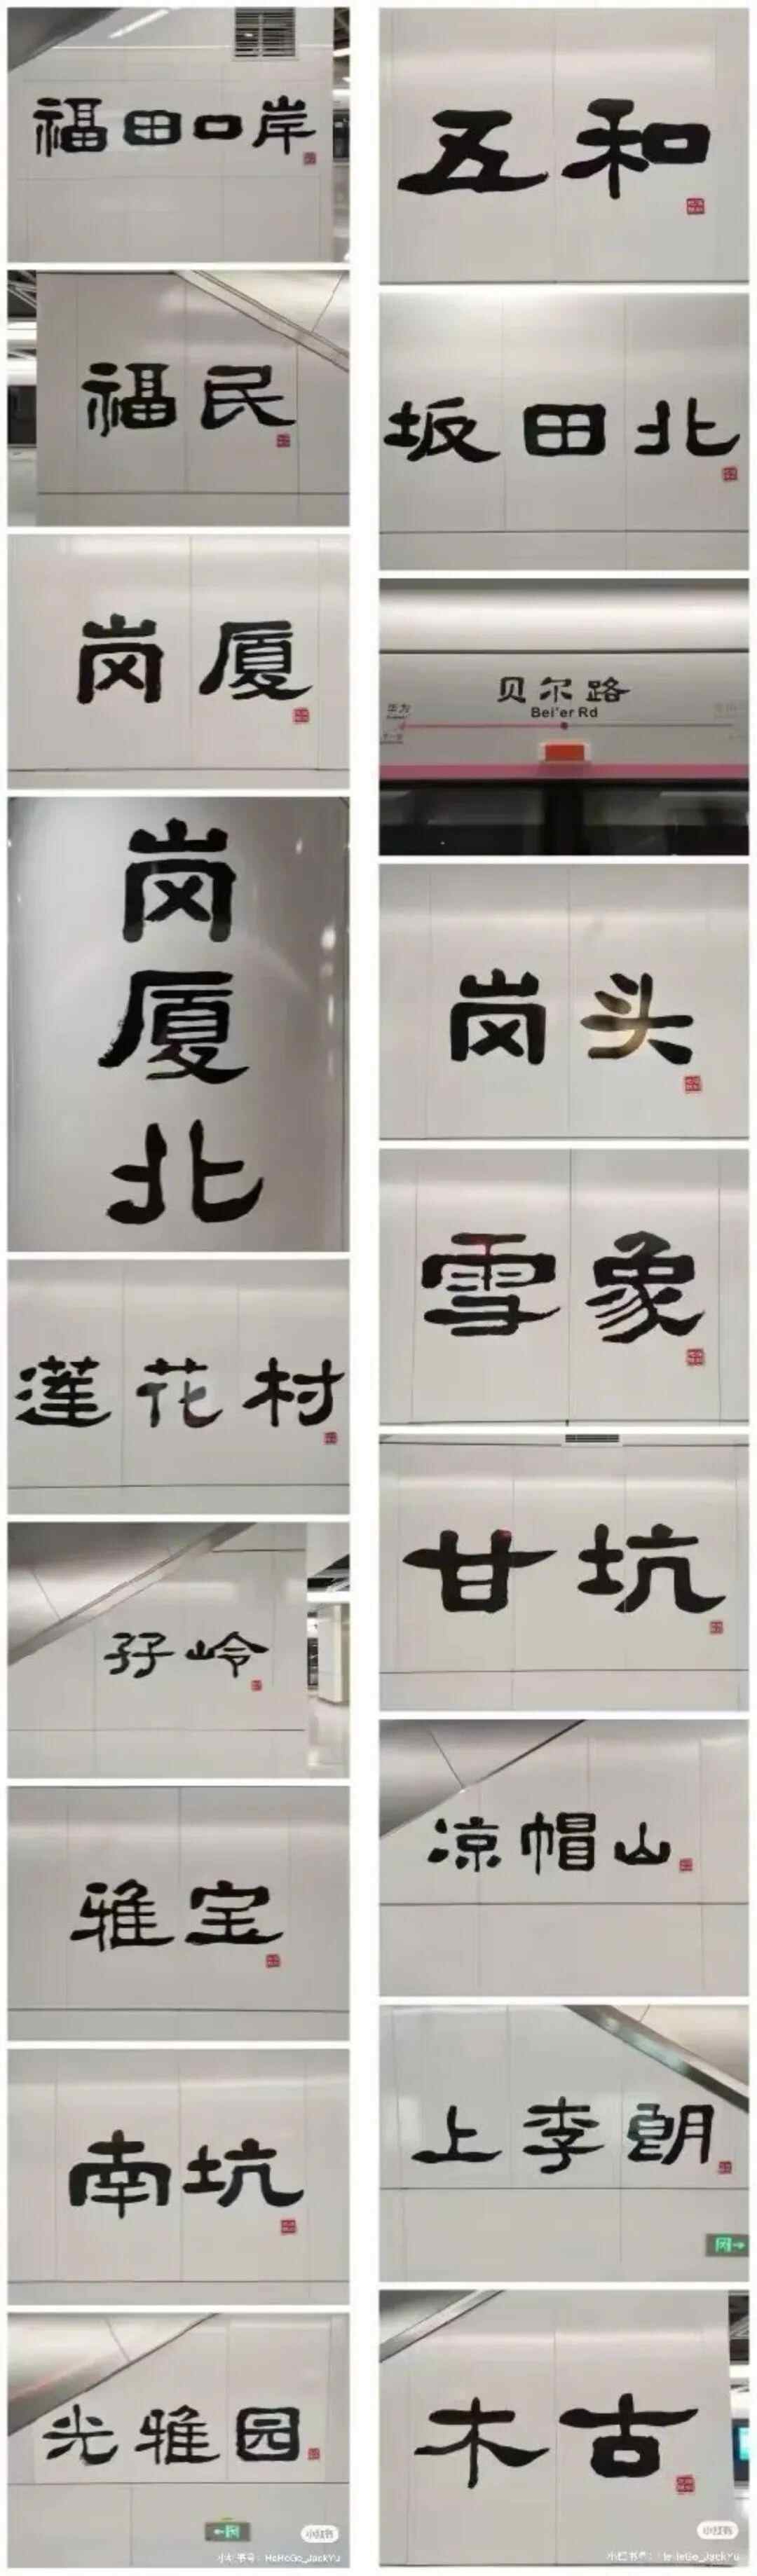 福田口岸
福民
岗厦
岗
厦
北
莲花村
孖岭
雅宝
南坑
光雅园
小红书
小红书号：HeHeGo_JackYu
五和
坂田北
贝尔路
Bei'er Rd
华为
岗头
雪象
甘坑
凉帽山
上李朗
木古
小红书
小红书号：HeHeGo_JackYu